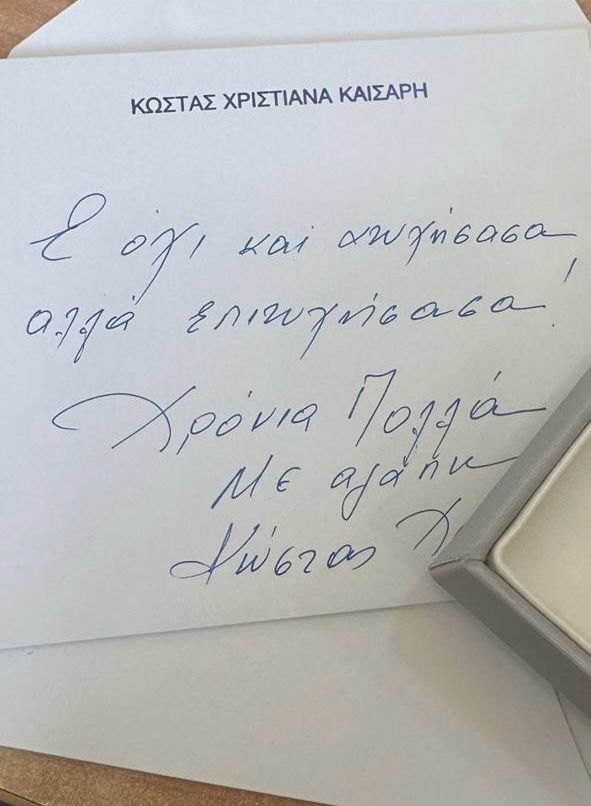 ΚΩΣΤΑΣ ΧΡΙΣΤΙΑΝΑ ΚΑΙΣΑΡΗ
Ε όχι και ατυχήσασα
αλλά επιτυχήσασα!
Χρόνια Πολλά
Με αγάπη
Κώστας Χ